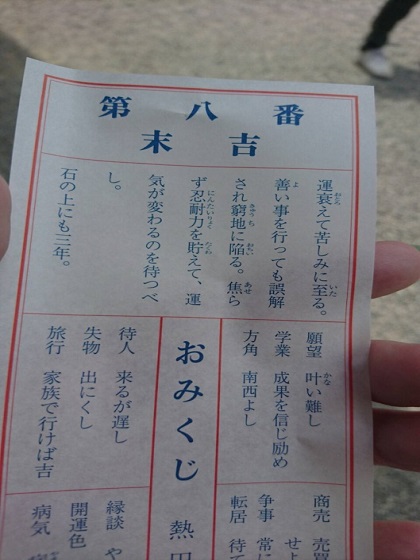 第八番
末吉
運衰えて苦しみに至る。
善い事を行っても誤解
され窮地に陥る。焦ら
ず忍耐力を貯えて、運
気が変わるのを待つべ
し。
石の上にも三年。
願望 叶い難し
学業 成果を信じ励め
方角 南西よし
おみくじ 熱田
待人 来るが遅し
失物 出にくし
旅行 家族で行けば吉
商売 売買
せよ
争事 常に
転居 待て
縁談 や
開運色
病気